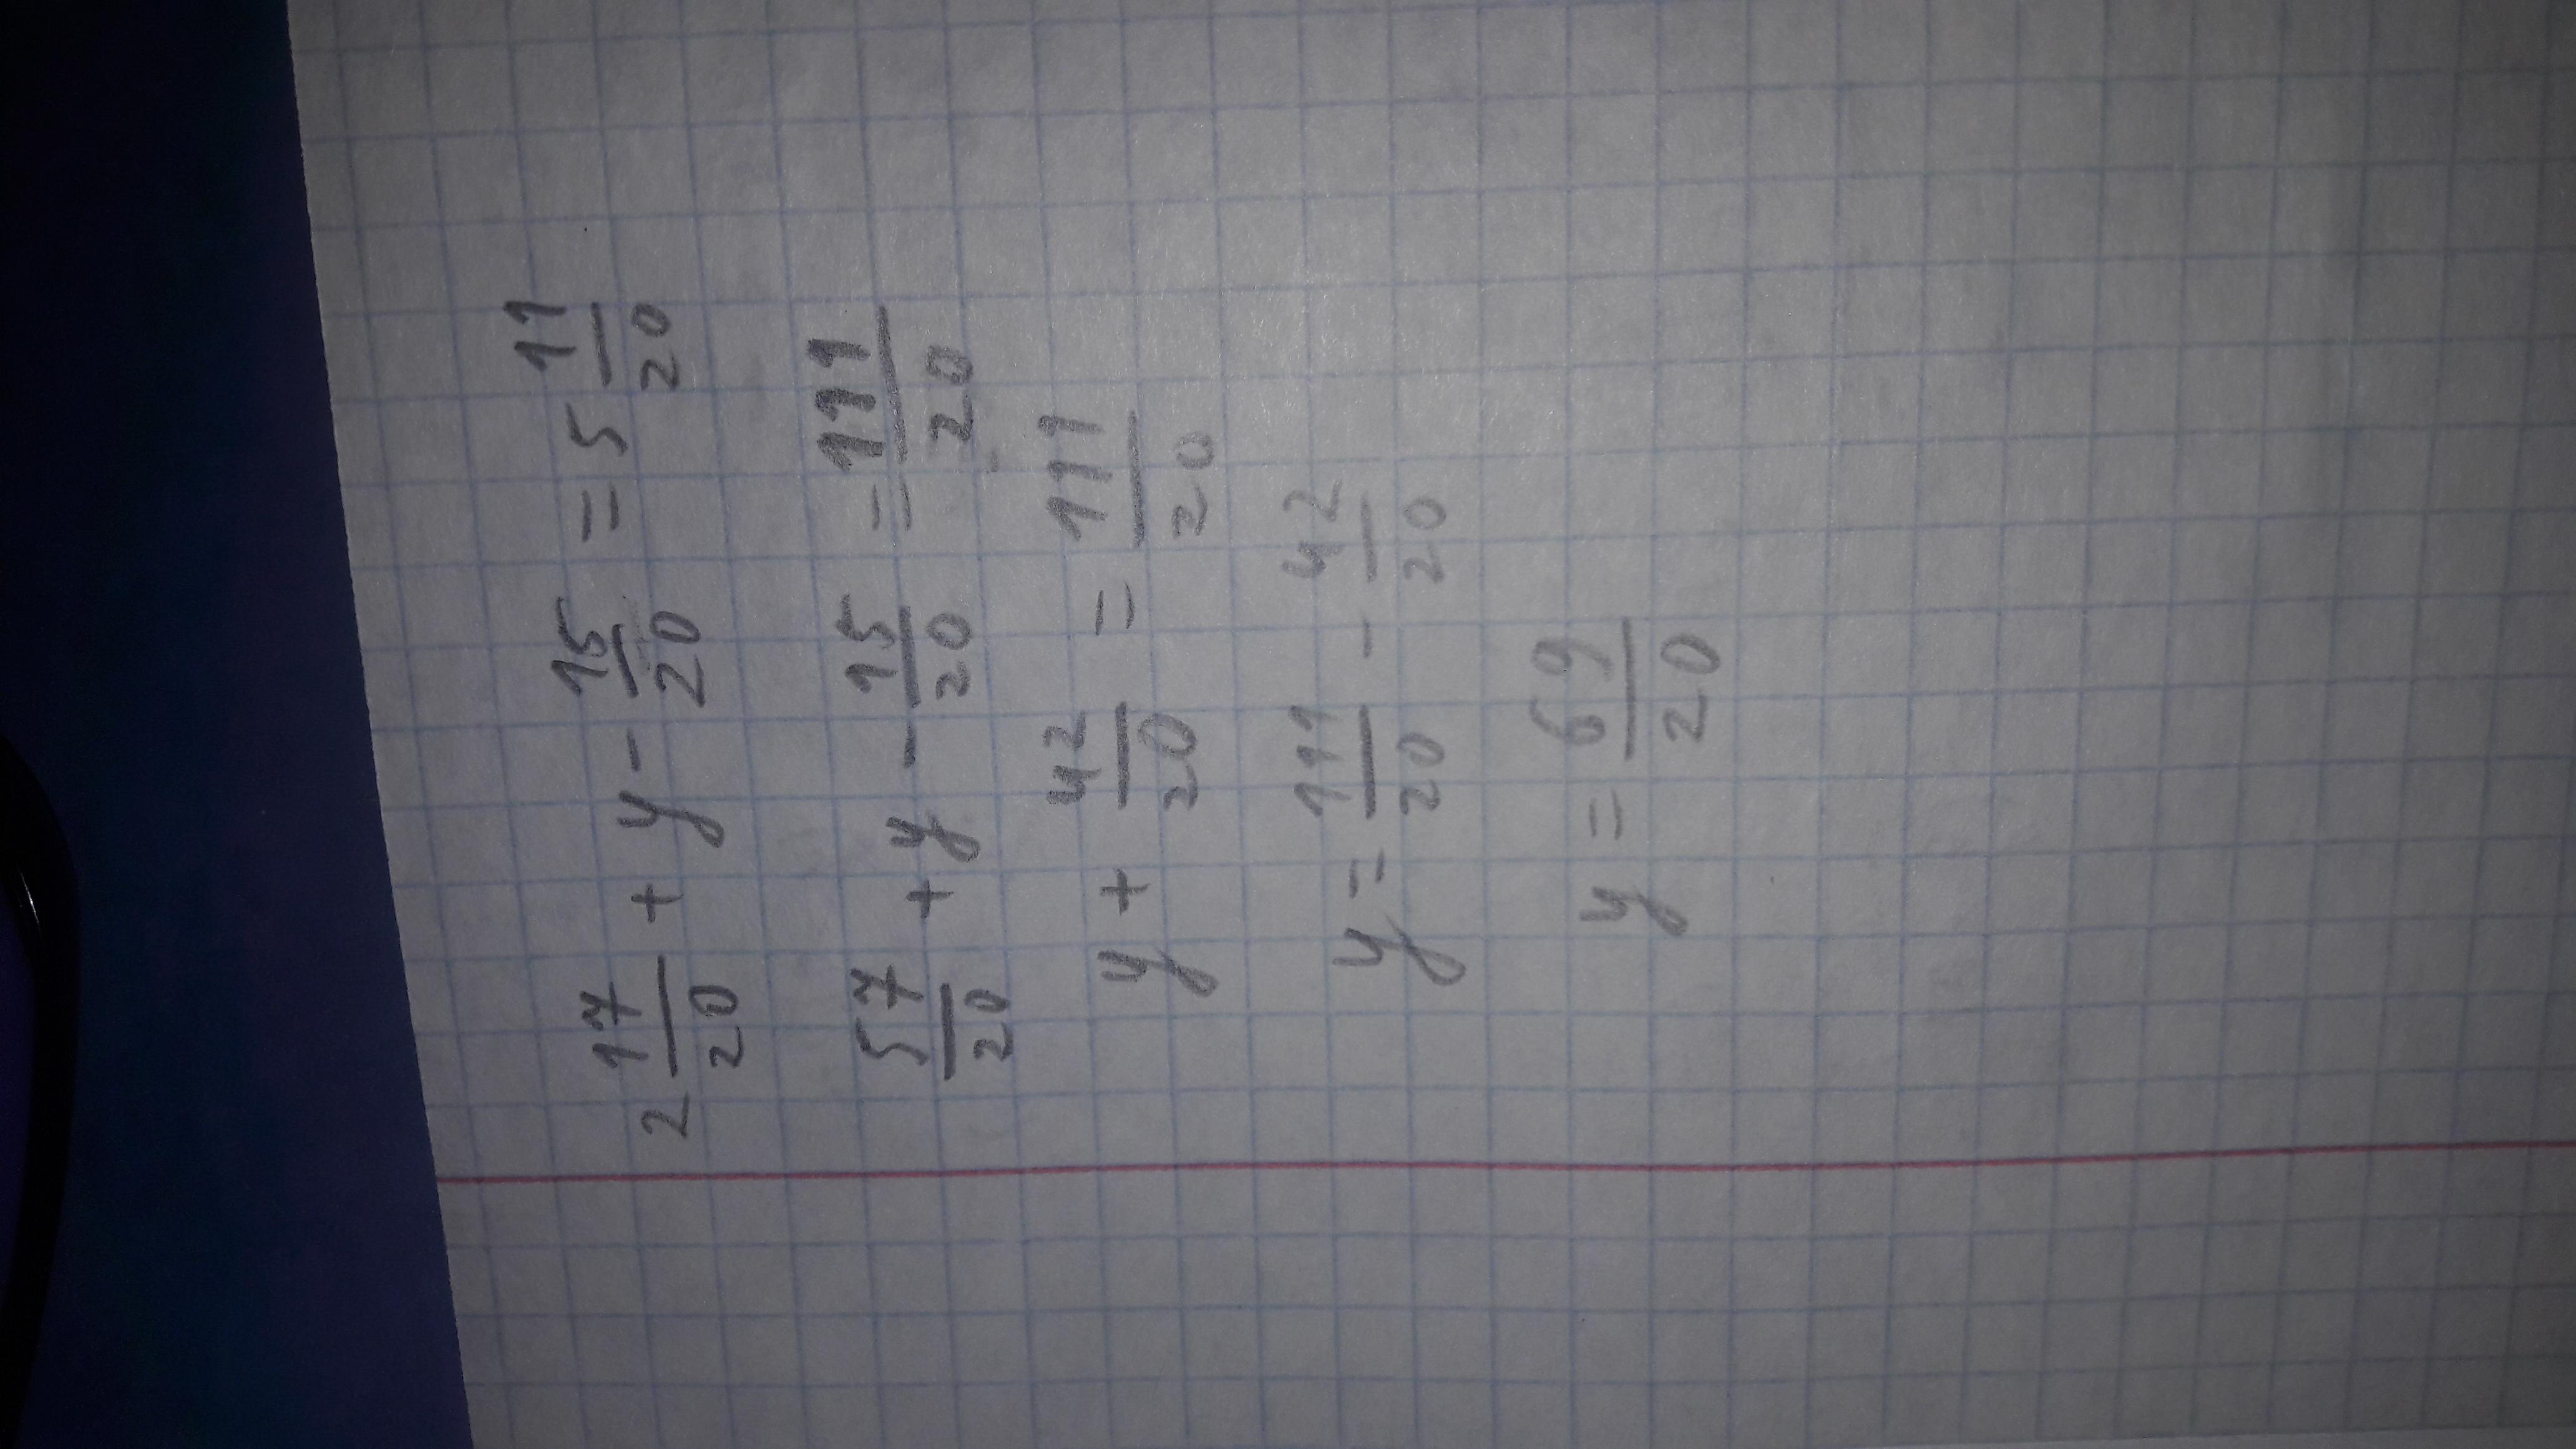 2 17/20 + y - 15/20 = 5 11/20
57/20 + y - 15/20 = 111/20
y + 42/20 = 111/20
y = 111/20 - 42/20
y = 69/20